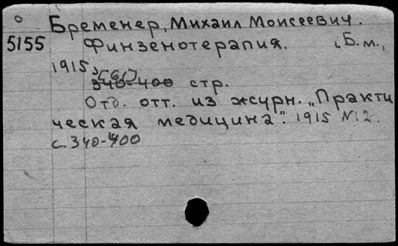 о Бременер, Михаил Моисеевич.
5155 Финзенотерапия. „Б. м.,
1915,
[61]
340-400 стр.
Отд. отт. из журн. „Практи
ческая медицина". 1915 №2.
с. 340-400